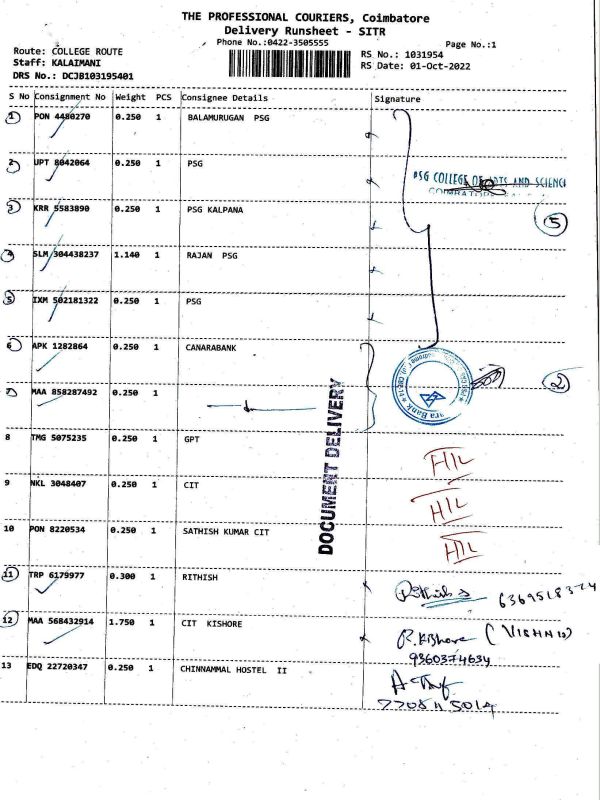 THE PROFESSIONAL COURIERS, Coimbatore
Delivery Runsheet - SITR
Phone No.:0422-3505555
Page No.:1
Route: COLLEGE ROUTE
Staff: KALAIMANI
DRS No.: DCJB103195401
RS No.: 1031954
RS Date: 01-Oct-2022
S No Consignment No Weight PCS Consignee Details Signature
1 PON 4480270 0.250 1 BALAMURUGAN PSG
2 JPT 8042064 0.250 1 PSG
PSG COLLEGE OF ARTS AND SCIENC
COIMBATORE
3 KRR 5583890 0.250 1 PSG KALPANA
5
4 SLM 304438237 1.140 1 RAJAN PSG
5 IXM 502181322 0.250 1 PSG
6 APK 1282864 0.250 1 CANARABANK
2
7 MAA 858287492 0.250 1
ara Bank
DOCUMENT DELIVERY
8 TMG 5075235 0.250 1 GPT
H/L
9 NKL 3048407 0.250 1 CIT
H/L
10 PON 8220534 0.250 1 SATHISH KUMAR CIT
H/L
11 TRP 6179977 0.300 1 RITHISH
Rithish s 6369518324
12 MAA 568432914 1.750 1 CIT KISHORE
R.Kishore (VISHNU)
9360374634
13 EDQ 22720347 0.250 1 CHINNAMMAL HOSTEL II